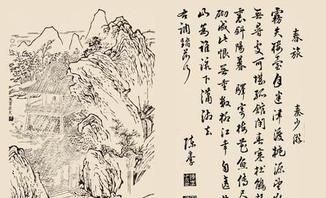 春旅
秦少游
霧失樓臺月迷津渡桃源望
無尋處可堪孤館閉春寒杜鵑
裏斜陽暮 驛寄梅花魚傳尺
砌成此恨無重數郴江幸自遶
山為誰流下瀟湘去
右調踏莎行